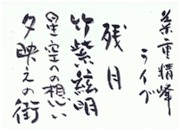 菊重精峰
ライブ
残月
竹紫絃明
星空への想い
夕映えの街